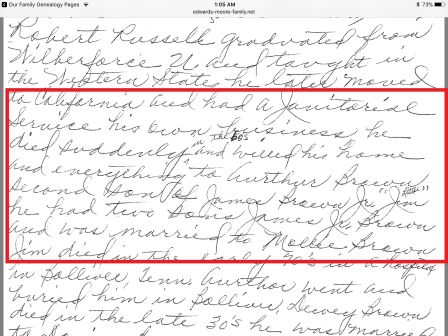 Our Family Genealogy Pages
1:05 AM
73%
edwards-moore-family.net
Robert Russell graduated from
Wilberforce U. and taught in
the Western States he later moved
to California and had a Janitorial
Service his own business he
died suddenly in the 60s and willed his home
and everything to Aurthur Brown
second son of James Brown Jr. "Jim"
he had two sons James Jr. Brown
and was married to Mollie Brown
Jim died in the early 70's in a hospital
in Bollivee, Tenn. Aurthor went and
buried him in Bollivar, Dewey Brown
died in the late 30's he was married